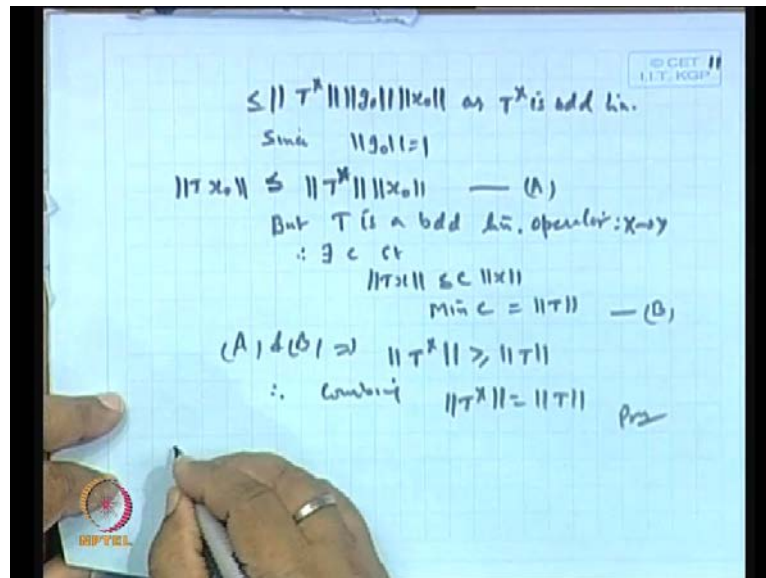 © CET 11
I.I.T. KGP
≤ || T^x || ||g₀|| ||x₀|| as T^x is bdd lin.
Since ||g₀|| = 1
||T x₀|| ≤ ||T^x|| ||x₀|| — (A)
But T is a bdd lin. operator : X→Y
∴ ∃ c st
||Tx|| ≤ c ||x||
Min c = ||T|| — (B)
(A) & (B) ⇒ ||T^x|| ≥ ||T||
∴ Combining ||T^x|| = ||T||
NPTEL